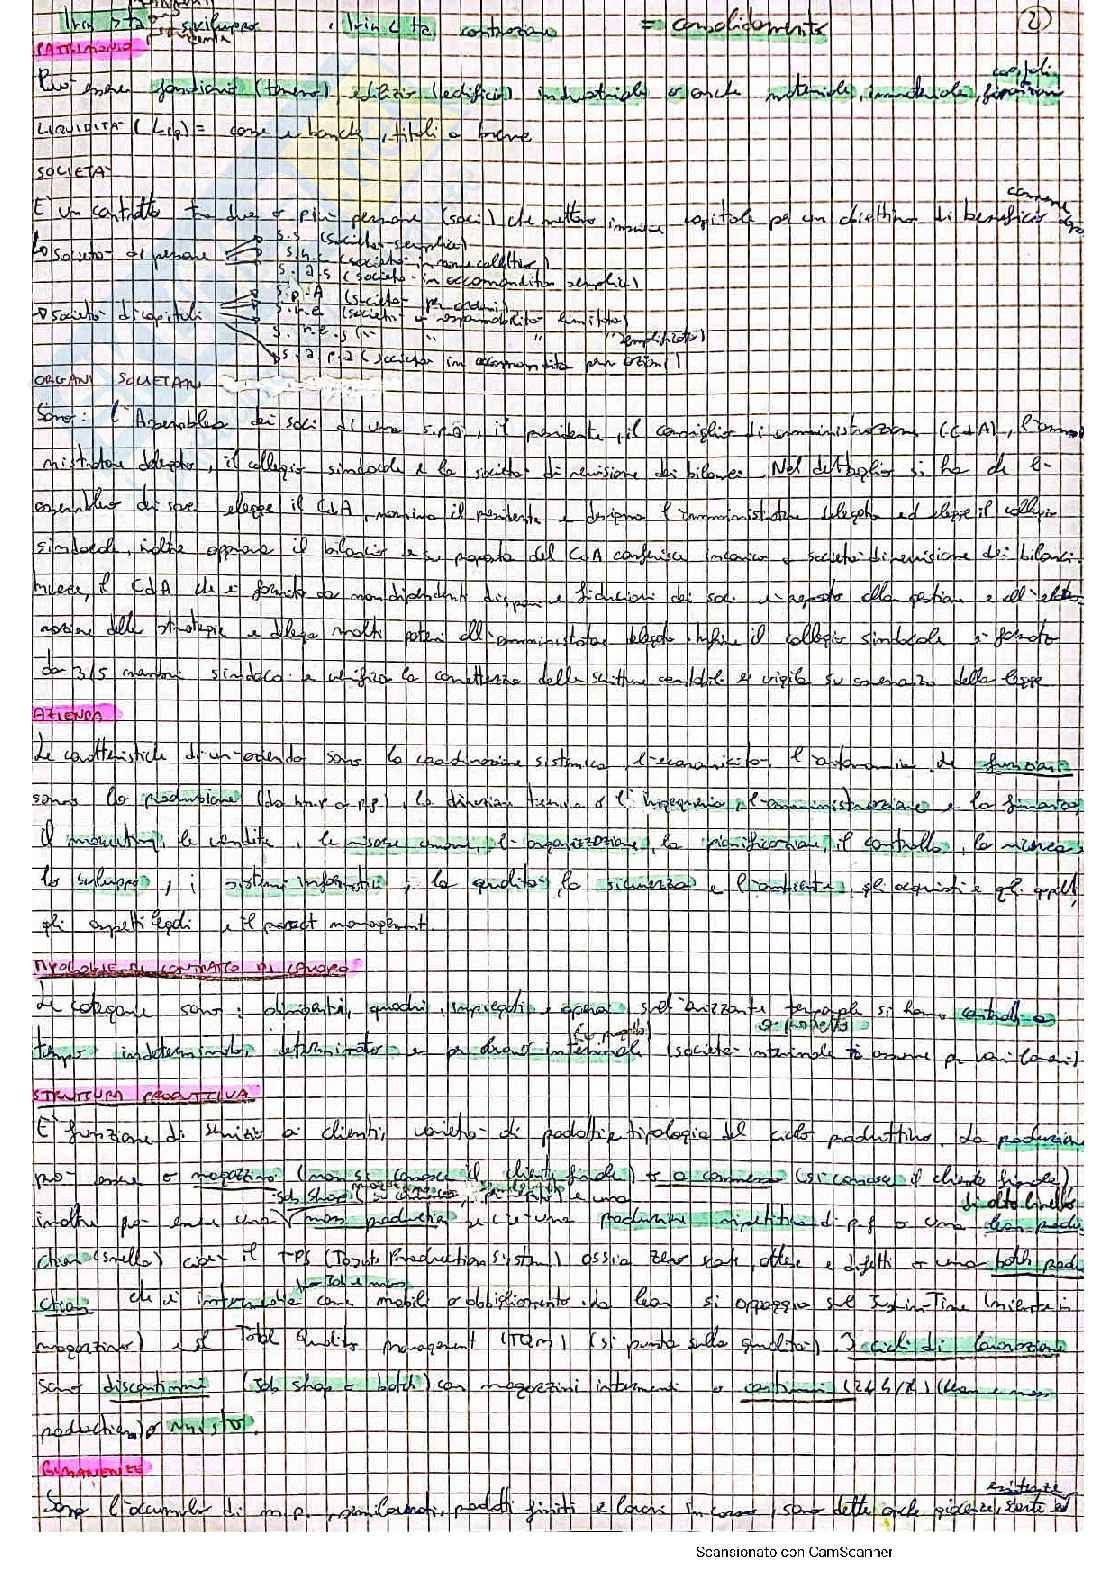 sviluppo contrazione = consolidamento 2
PATRIMONIO
Può essere fondiario (terreno) edilizio (edifici) industriale o anche materiale, immateriale,
LIQUIDITÀ (Liq) = casse e banche, titoli a breve
SOCIETÀ
È un contratto tra due o più persone (soci) che mettono insieme capitale per un obiettivo di beneficio comune
società di persone s.s (società semplice)
s.n.c (società in nome collettivo)
s.a.s (società in accomandita semplice)
s.p.A (società per azioni)
società di capitali s.r.l (società a responsabilità limitata)
s.r.l.s ( " " semplificata)
s.a.p.a (società in accomandita per azioni)
ORGANI SOCIETARI
Sono: l'Assemblea dei soci di una s.p.a, il presidente, il consiglio di amministrazione (CdA), l'ammi
nistratore delegato, il collegio sindacale e la società di revisione dei bilanci. Nel dettaglio si ha che l'
assemblea dei soci elegge il CdA, nomina il presidente e designa l'amministratore delegato ed elegge il collegio
sindacale, inoltre approva il bilancio su proposta del CdA conferisce incarico a società di revisione dei bilanci.
Invece, il CdA che è formato da non dipendenti fiduciari dei soci è preposto alla gestione e all'
delle strategie e delega molti poteri all'amministratore delegato. Infine il collegio sindacale è formato
da 3/5 membri sindaci e verifica la correttezza delle scritture contabili e vigila su osservanza della legge
AZIENDA
Le caratteristiche di un'azienda sono la coordinazione sistemica, l'economicità, l'autonomia. Le funzioni
sono la produzione (da m.p a p.f), la direzione tecnica o l'ingegneria, l'amministrazione e la finanza,
il marketing, le vendite, le risorse umane, l'organizzazione, la pianificazione, il controllo, la ricerca
lo sviluppo, i sistemi informatici, la qualità, la sicurezza e l'ambiente, gli acquisti e gli appalti,
gli aspetti legali e il project management.
TIPOLOGIE DI CONTRATTO DI LAVORO
Le categorie sono: dirigenti, quadri, impiegati e operai. Sull'orizzonte temporale si hanno contratti a
(a progetto) o a progetto
tempo indeterminato, determinato e per lavoro interinale (società interinale ti assume per vari lavori)
STRUTTURA PRODUTTIVA
È funzione di servizio ai clienti, varietà di prodotti e tipologia del ciclo produttivo. La produzione
può essere a magazzino (non si conosce il cliente finale) o a commessa (si conosce il cliente finale)
job shop e una di alto livello
inoltre può essere una mass production se c'è una produzione ripetitiva di p.f o una lean produ
ction (snella) cioè il TPS (Toyota Production System) ossia zero scorte, attese e difetti o una batch produ
ction che è intermedia come mobili o abbigliamento. La lean si appoggia sul Just in Time (niente in
magazzino) e il Total Quality management (TQM) (si punta sulla qualità). I cicli di lavorazione
sono discontinui (Job shop e batch) con magazzini intermedi o continui (24h/24) (lean e mass
production) o misto.
RIMANENZE
esistenze
Sono l'accumulo di m.p., semilavorati, prodotti finiti e lavori in corso, sono dette anche giacenze, scorte ed
Scansionato con CamScanner